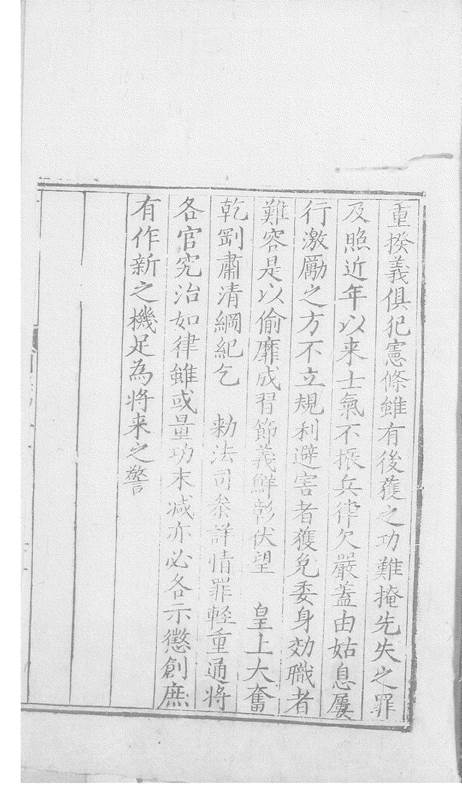 重揆義俱犯憲條雖有後獲之功難掩先失之罪
及照近年以来士氣不振兵律欠嚴蓋由姑息屢
行激勵之方不立規利避害者獲免委身効職者
難容是以偷靡成習節義鮮彰伏望 皇上大奮
乾剛肅清綱紀乞 勑法司条詳情罪輕重通將
各官究治如律雖或量功末减亦必各示懲創庶
有作新之機足為将来之警